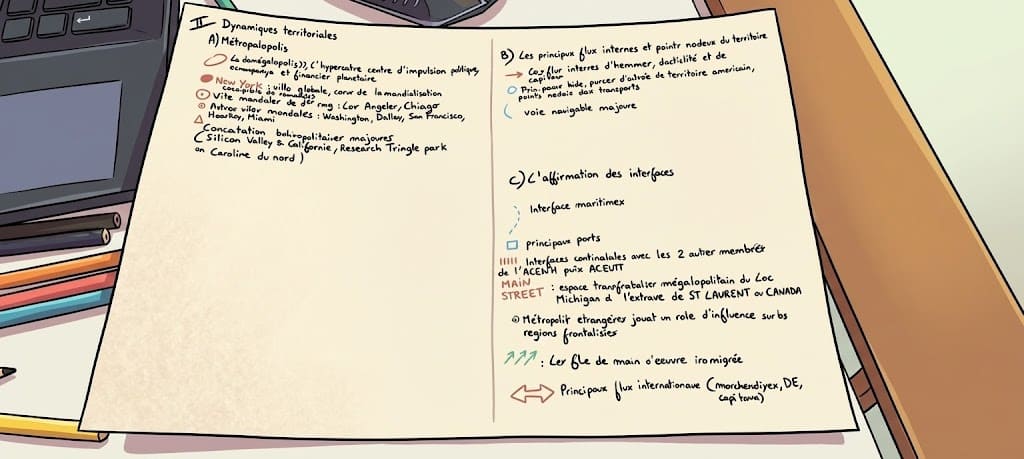 II Dynamiques territoriales
A) Métropalopolis
La damégalopolis)), (l'hypercatre centre d'impulsion politique,
et financier planetaire
New York : villo globale, cœur de la mandialisation
Vite mandaler de der rmg : Lor Angeler, Chiago
Autror villor mondales : Washington, Dalloy, San Francisco,
Hoostoy, Miami
Concatation bohropolitaiver majoures
(Silicon Valley & Californie, Research Tringle park
on Caroline du nord)
B) Les principux flux internes et pointr nodeux du territoire
Cos flur interres d'hemmer, dactlicité et de
capitaux
Prin.paux hide, purcer d'autrée de territoire americain,
points nedaie dax transports
voie navigable majoure
C) L'affirmation des interfaces
Interface maritimex
principaux ports
Interfaces continalales avec les 2 autier membrés
de l'ACENH puix ACEUTT
MAIN : espace tranfrabaliser mégalopolitain du Loc
STREET Michigan d l'extrave de ST LAURENT ou CANADA
Métropolir etrangéres jouat un role d'influence sur bs
regions frontalisies
: Ler file de main o'eeuvre iromigrée
Principaux flux internationave (morchendiyex, DE,
capitava)